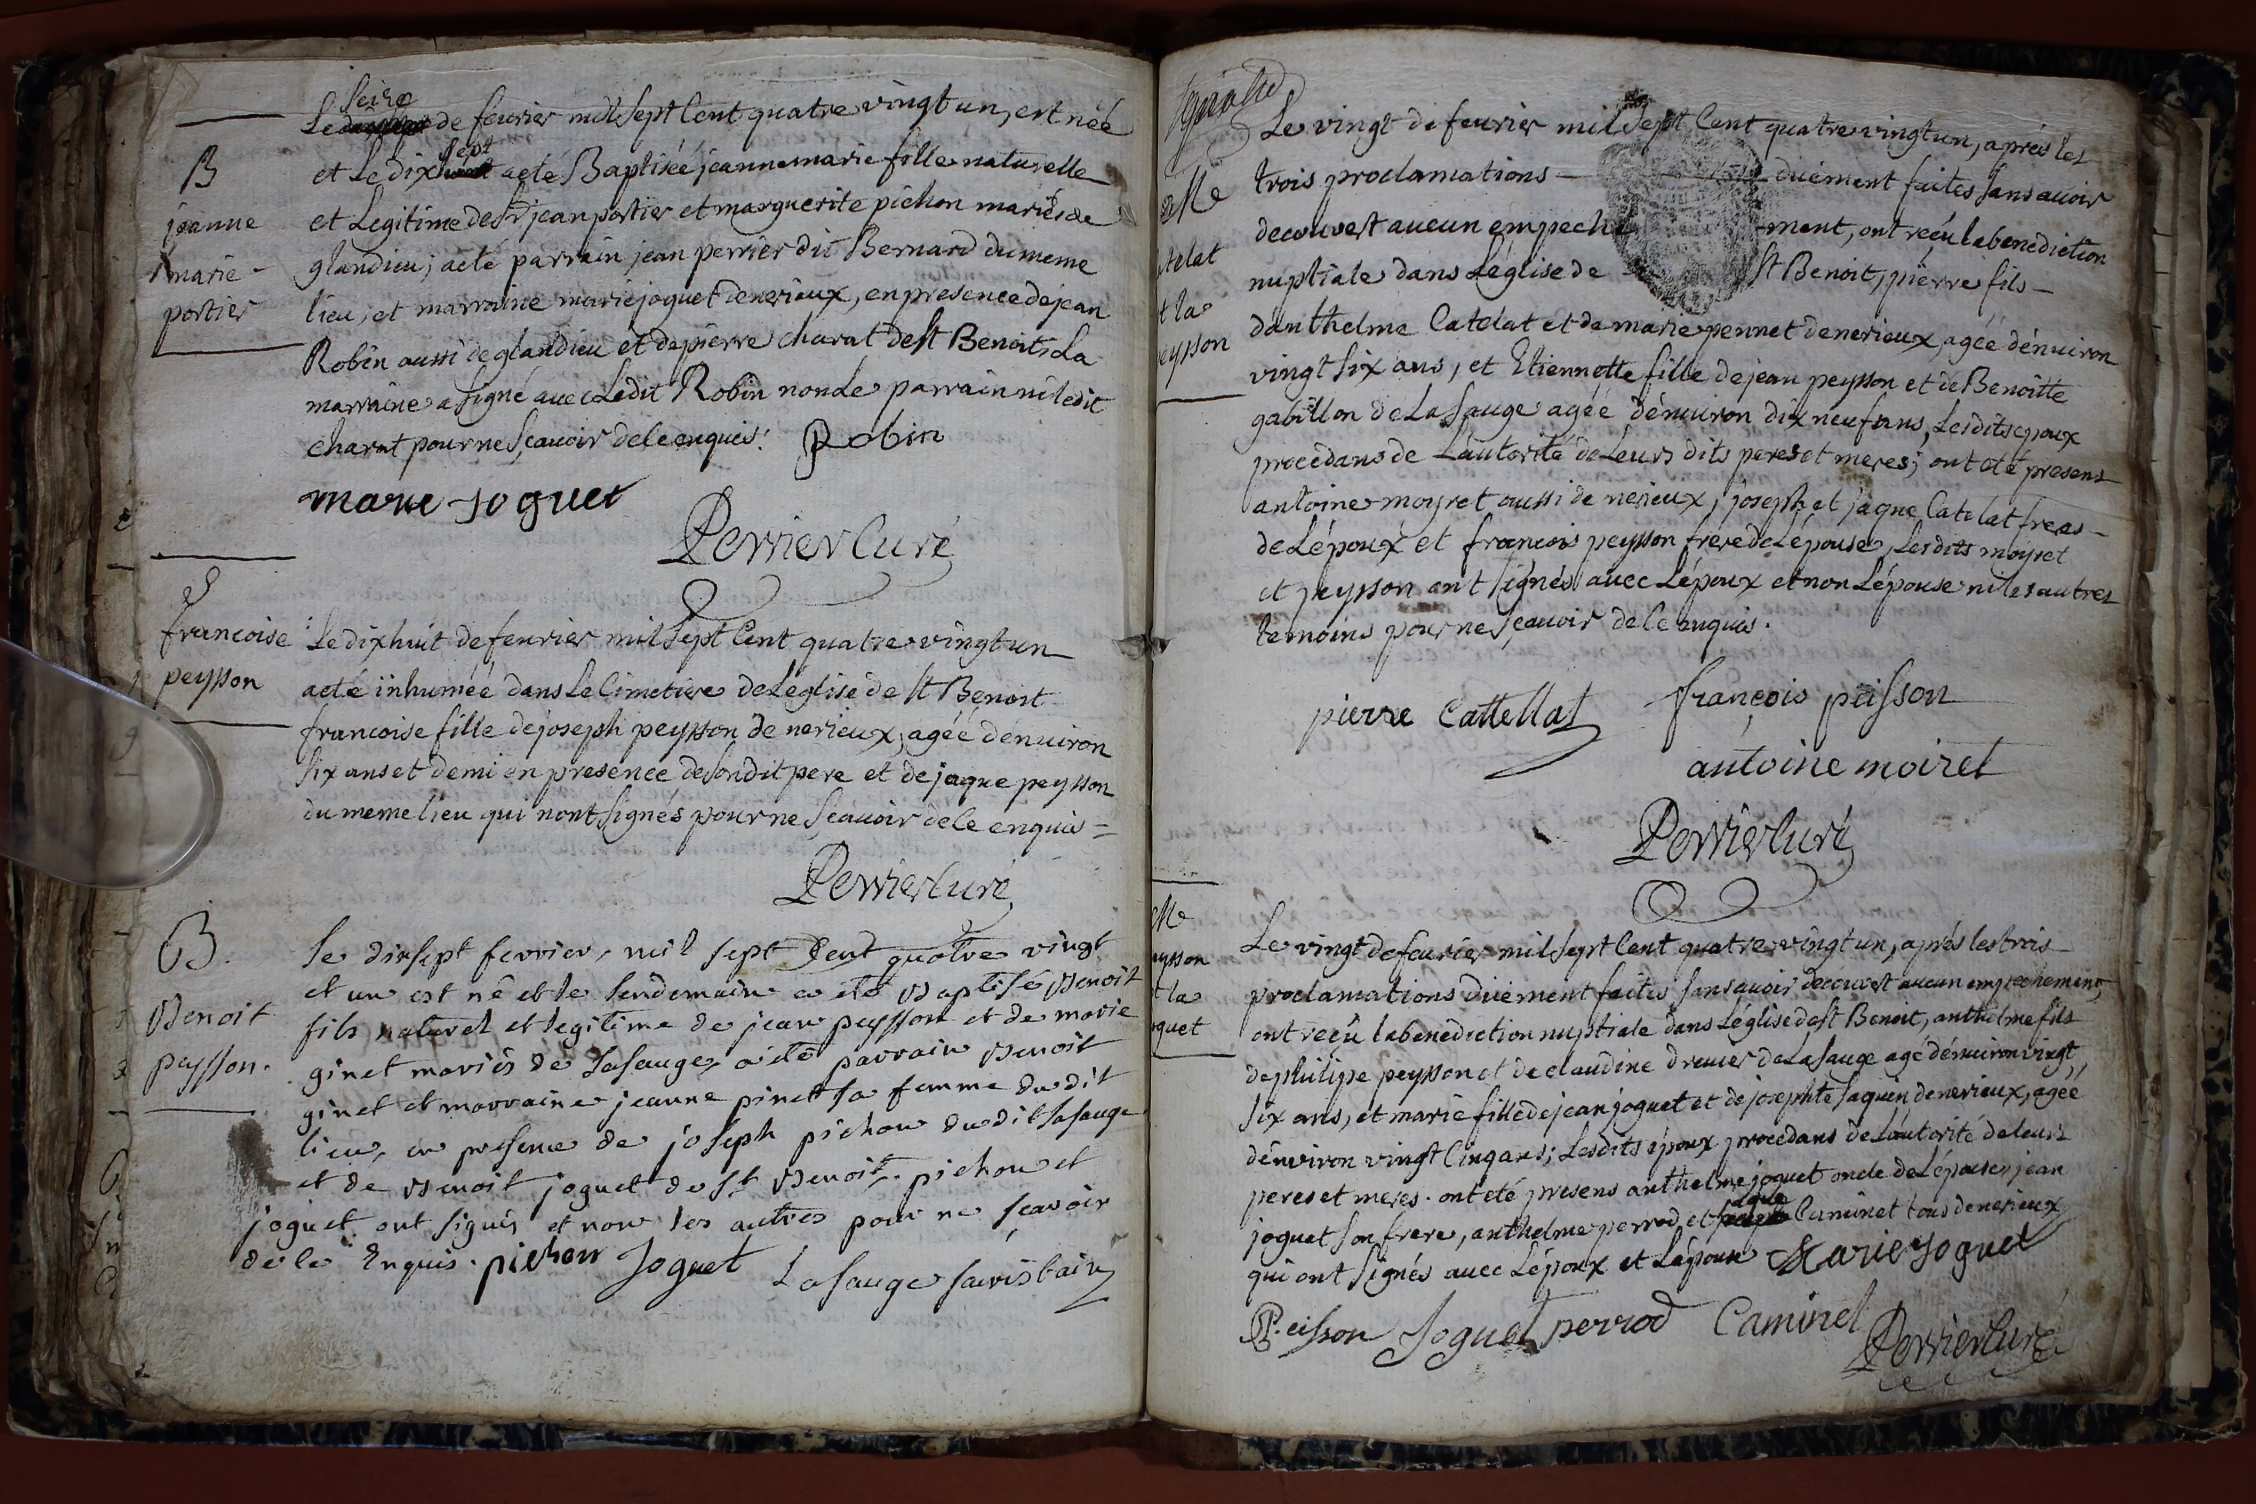 B
jeanne
marie -
portier
seize
Le de fevrier mil sept Cent quatre vingt un, est née
sept
et Le dix a eté Baptiseé jeanne marie fille naturelle
et Legitime de Sr jean portier et marguerite pichon mariés de
glandieu; a eté parrain jean perrier dit Bernard du meme
lieu, et marraine marie joguet de nerieux, en presence de jean
Robin aussi de glandieu et de pierre charat de St Benoit, La
marraine a signé avec Ledit Robin non le parrain ni ledit
charat pour ne sçavoir de ce enquis. Robin
marie joguet
Perrier Curé
francoise
peysson
Le dix huit de fevrier mil sept Cent quatre vingt un
a eté inhumeé dans Le Cimetiere de L'eglise de St Benoit
francoise fille de joseph peysson de nerieux, ageé d'enuiron
six ans et demi en presence de sondit pere et de jaque peysson
du meme lieu qui n'ont signés pour ne sçavoir de ce enquis =
Perrier Curé
B.
Benoit
peysson.
Le dixsept fevrier, mil sept Cent quatre vingt
et un est né et le lendemain a été Baptisé Benoit
fils naturel et legitime de jean peysson et de marie
ginet mariés de Lasauge, a été parrain Benoit
ginet et marraine jeanne pinet sa femme du dit
lieu, en presence de joseph pichon du dit Lasauge
et de Benoit joguet de St Benoit. pichon et
joguet ont signés et non les autres pour ne sçavoir
de ce Enquis. pichon Joguet Lasauge sacristain
Le vingt de fevrier mil sept Cent quatre vingt un, aprés les
trois proclamations — düement faites sans avoir
decouvert aucun empeche -ment, ont reçu la benediction
nuptiale dans L'église de St Benoit, pierre fils —
d'anthelme Catelat et de marie pennet de nerieux, ageé d'enuiron
vingt six ans, et Etiennette fille de jean peysson et de Benoitte
gabillon de La Sauge ageé d'enuiron dix neuf ans, Lesdits epoux
procedans de L'autorité de Leurs dits peres et meres; ont eté presens
antoine moyret aussi de nerieux, joseph et jaque Catelat freres -
de L'époux et francois peysson frere de L'épouse, Lesdits moyret
et peysson ont signés avec L'époux et non L'épouse ni les autres
temoins pour ne sçavoir de ce enquis.
pierre Cattellat françois peisson
antoine moiret
Perrier Curé
Le vingt de fevrier mil sept Cent quatre vingt un, aprés les trois
proclamations düement faites sans avoir decouvert aucun empechement,
ont reçû la benediction nuptiale dans L'église de St Benoit, anthelme fils
de philipe peysson et de claudine drevet de La Sauge agé d'enuiron vingt
six ans, et marie fille de jean joguet et de josephte saquin de nerieux, ageé
d'environ vingt Cinq ans; Lesdits époux procedans de L'autorité de leurs
peres et meres. ont eté presens anthelme joguet oncle de L'épouse, jean
jaque
joguet son frere, anthelme perrod, et Caminet tous de nerieux
qui ont signés avec L'époux et L'épouse Marie joguet
Peisson Joguet perrod Caminet
Perrier Curé